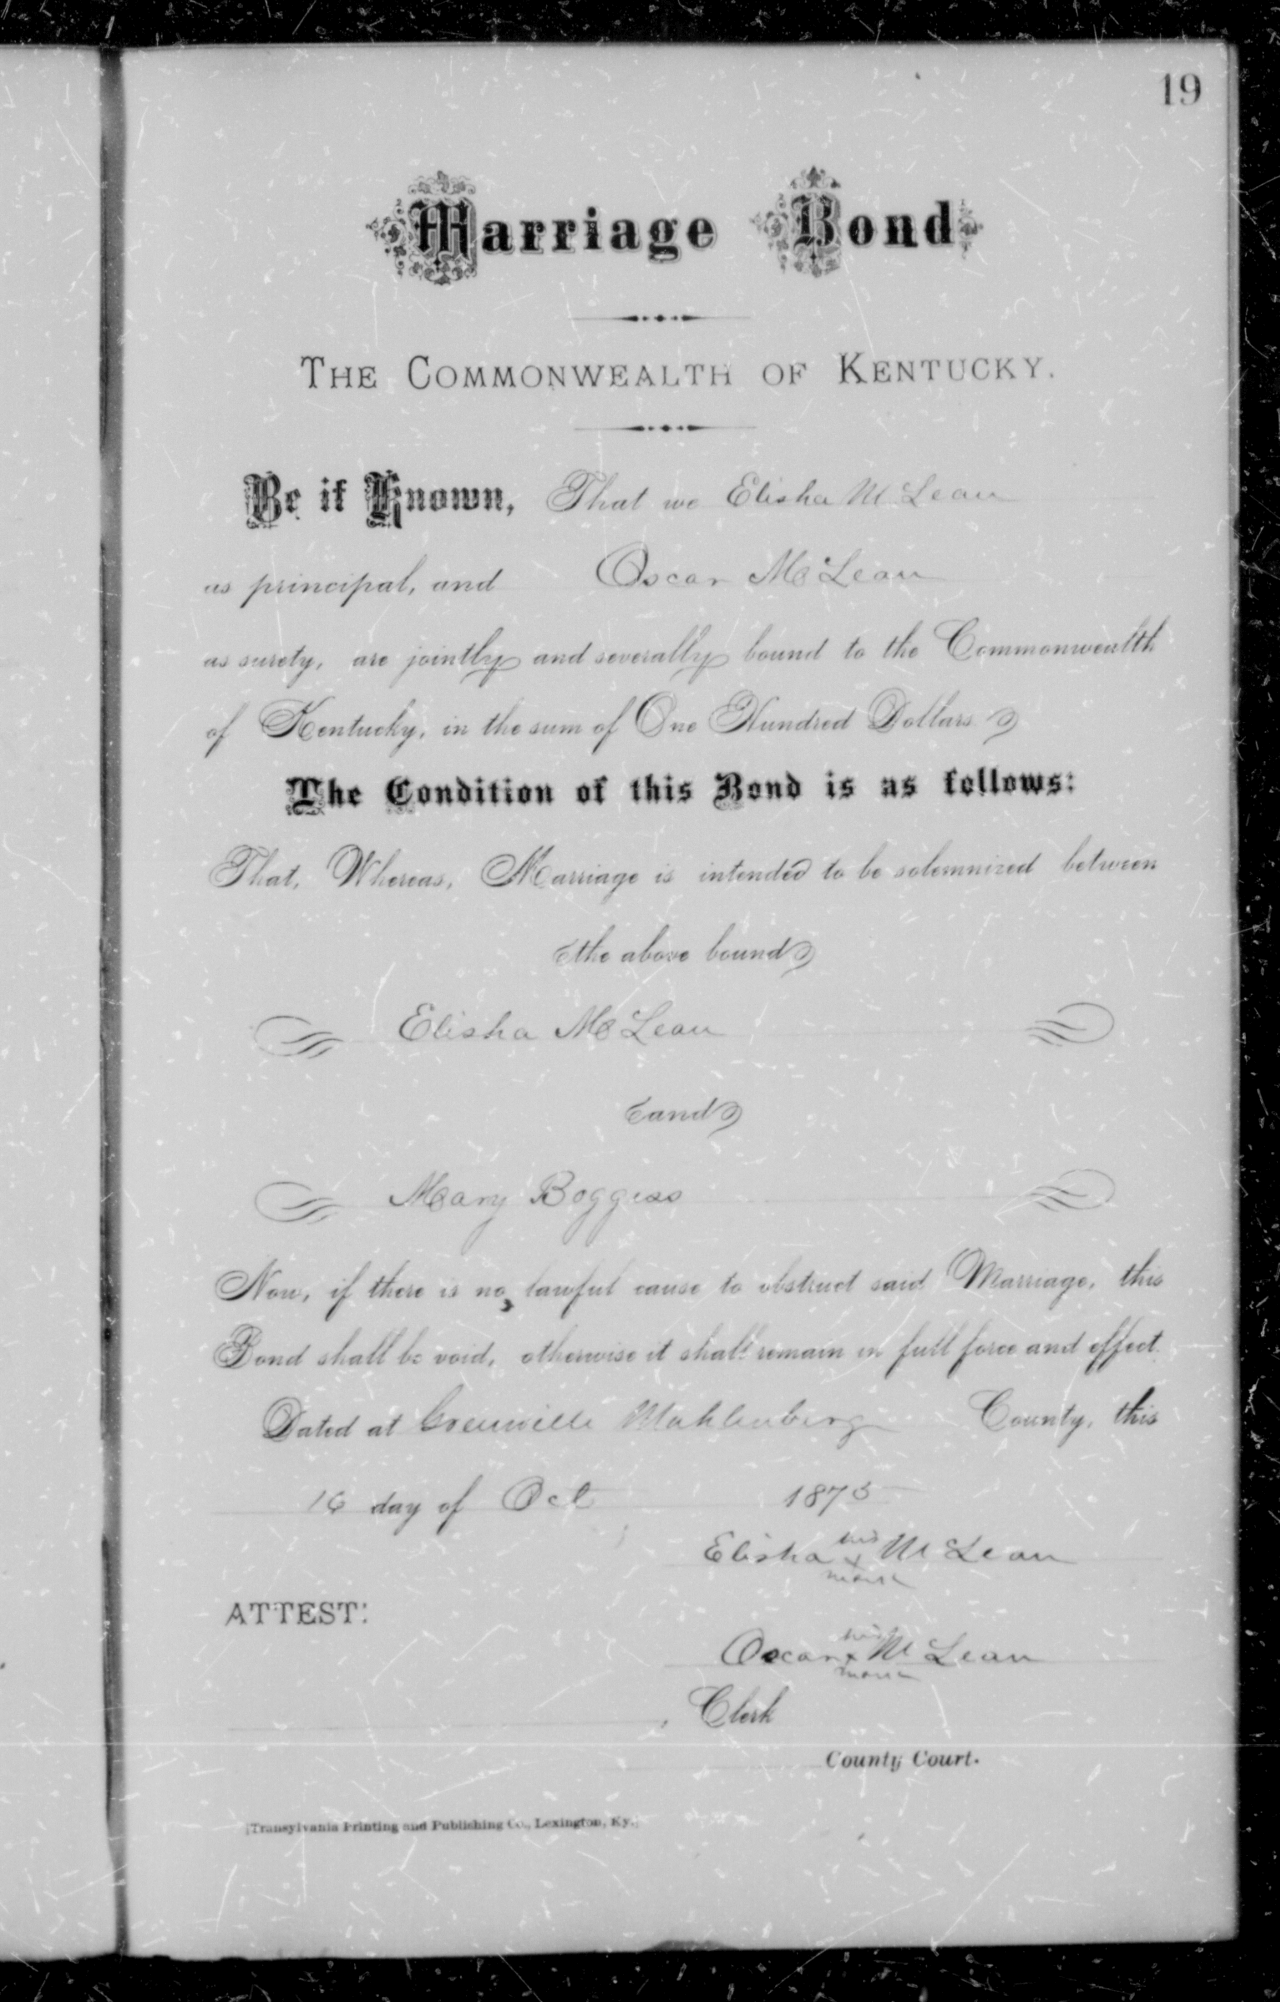 19
Marriage Bond
THE COMMONWEALTH OF KENTUCKY.
Be it Known, That we Elisha Mc Lean
as principal, and Oscar McLean
as surety, are jointly and severally bound to the Commonwealth
of Kentucky, in the sum of One Hundred Dollars.
The Condition of this Bond is as follows:
That, Whereas, Marriage is intended to be solemnized between
the above bound
Elisha McLean
and
Mary Boggess
Now, if there is no lawful cause to obstruct said Marriage, this
Bond shall be void, otherwise it shall remain in full force and effect.
Dated at Greenville Muhlenberg County, this
16 day of Oct 1875
his
Elisha x Mc Lean
mark
ATTEST:
his
Oscar x Mc Lean
mark
, Clerk
County Court.
[Transylvania Printing and Publishing Co., Lexington, Ky.]